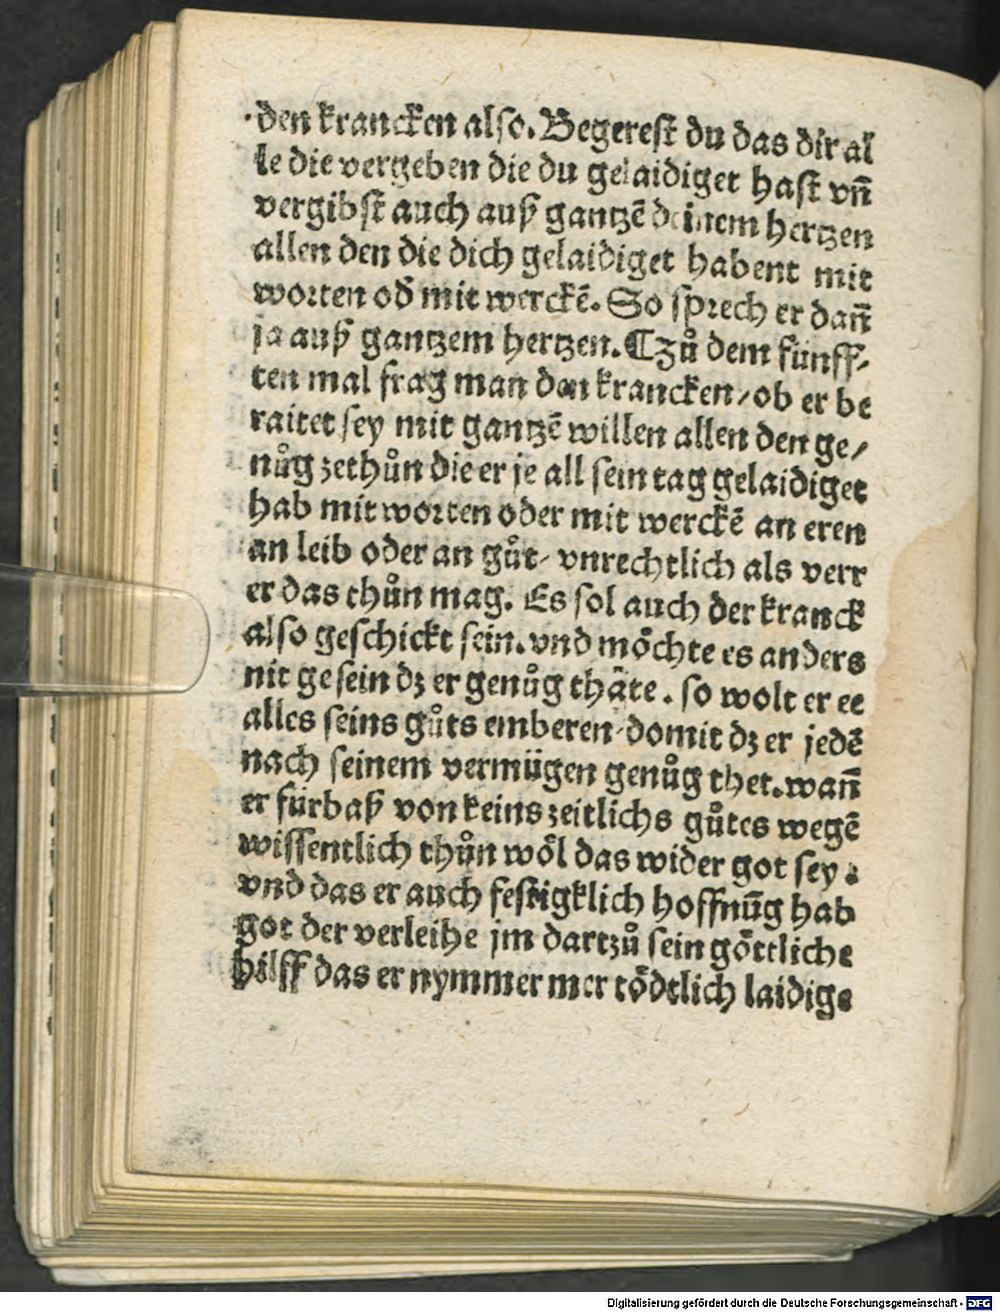 den krancken also. Begerest du das dir al
le die vergeben die du gelaidiget hast vn̄
vergibst auch auß gantzē deinem hertzen
allen den die dich gelaidiget habent mit
worten od̄ mit werckē. So sprech er dan̄
ja auß gantzem hertzen. ¶Zů dem fünff⸗
ten mal frag man den krancken/ ob er be
raitet sey mit gantzē willen allen den ge⸗
nůg zethůn die er je all sein tag gelaidiget
hab mit worten oder mit werckē an eren
an leib oder an gůt/ vnrechtlich als verr
er das thůn mag. Es sol auch der kranck
also geschickt sein. vnd möchte es anders
nit gesein dz er genůg thäte. so wolt er ee
alles seins gůts emberen/ domit dz er jedē
nach seinem vermügen genůg thet. wan̄
er fürbaß von keins zeitlichs gůtes wegē
wissentlich thůn wöl das wider got sey.
vnd das er auch festigklich hoffnūg hab
got der verleihe jm dartzů sein göttliche
hilff das er nymmer mer tödtlich laidige
Digitalisierung gefördert durch die Deutsche Forschungsgemeinschaft - DFG